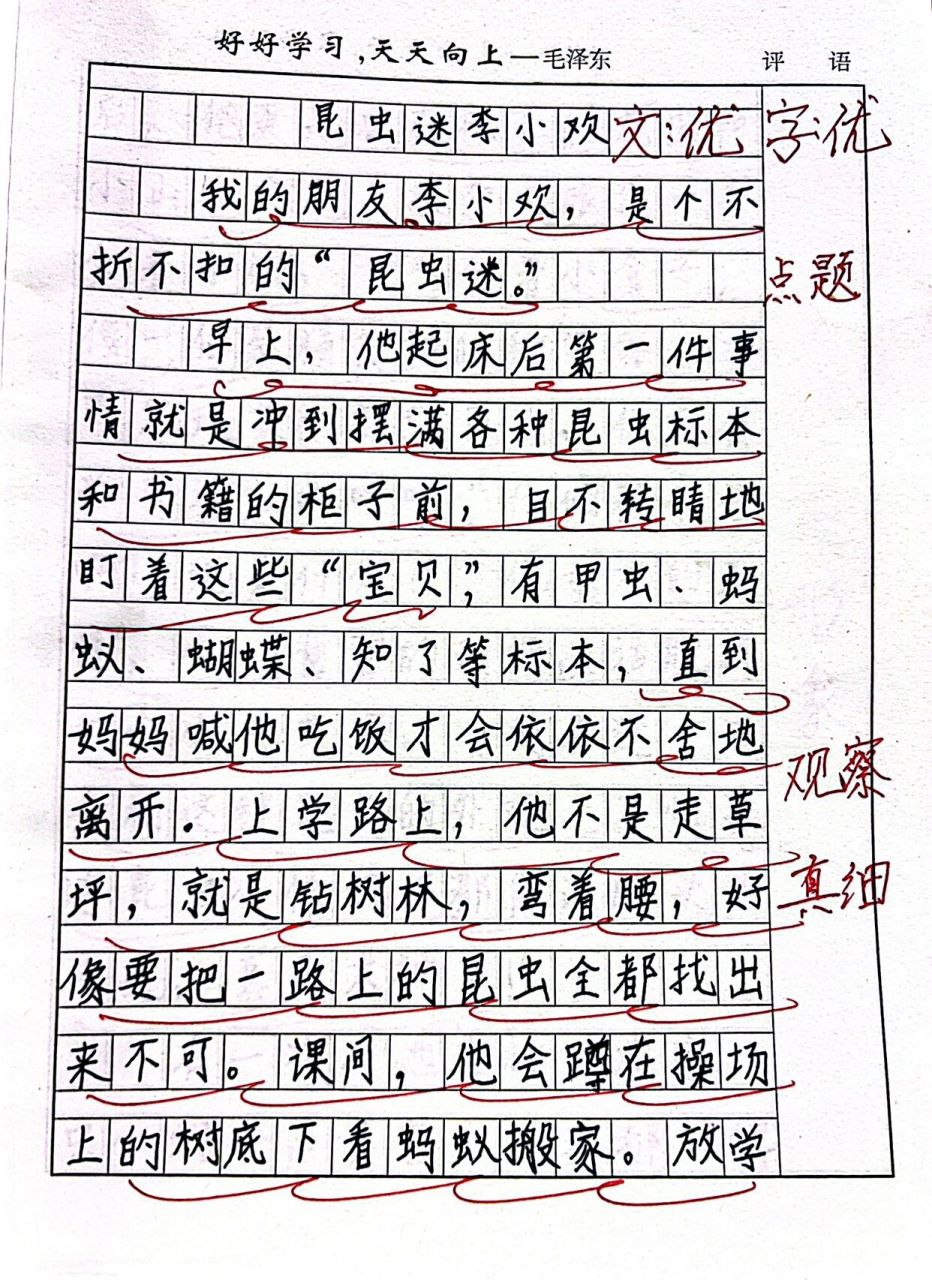 好好学习,天天向上—毛泽东 评语
昆虫迷李小欢 文:优 字:优
我的朋友李小欢，是个不
折不扣的“昆虫迷。” 点题
早上，他起床后第一件事
情就是冲到摆满各种昆虫标本
和书籍的柜子前，目不转睛地
盯着这些“宝贝”，有甲虫、蚂
蚁、蝴蝶、知了等标本，直到
妈妈喊他吃饭才会依依不舍地 观察
离开。上学路上，他不是走草
坪，就是钻树林，弯着腰，好 真细
像要把一路上的昆虫全都找出
来不可。课间，他会蹲在操场
上的树底下看蚂蚁搬家。放学